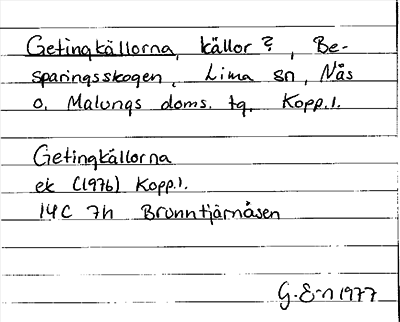 Getingkällorna, källor?, Be-
sparingsskogen, Lima sn, Nås
o. Malungs doms. tg. Kopp.l.
Getingkällorna
ek (1976) Kopp.l.
14C 7h Brunntjärnåsen
G. E-n 1977